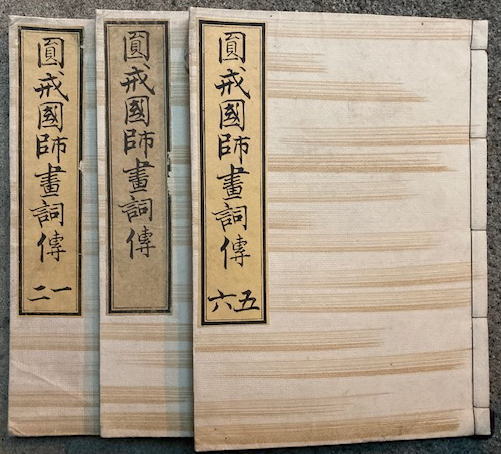 圓戒國師畫詞傳
一二
圓戒國師畫詞傳
圓戒國師畫詞傳
五六